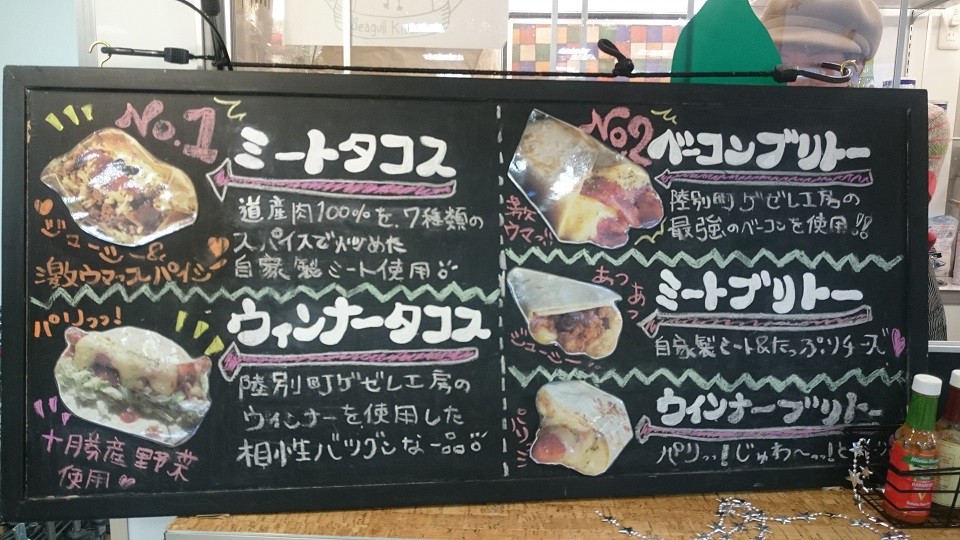 Seagull Ki
No.1
ミートタコス
道産肉100%を、7種類の
スパイスで炒めた
自家製ミート使用
ジューシー&
激ウマっスパイシー
ウィンナータコス
パリっっ!
陸別町ゲゼレ工房の
ウィンナーを使用した
相性バツグンな一品
十勝産野菜
使用
No2
ベーコンブリトー
陸別町ゲゼレ工房の
最強のベーコンを使用!!
激
ウマっ
ミートブリトー
あつ
あつ
ジューシー
自家製ミート&たっぷりチーズ
ウィンナーブリトー
パリっっ!じゅわ〜っっ!と